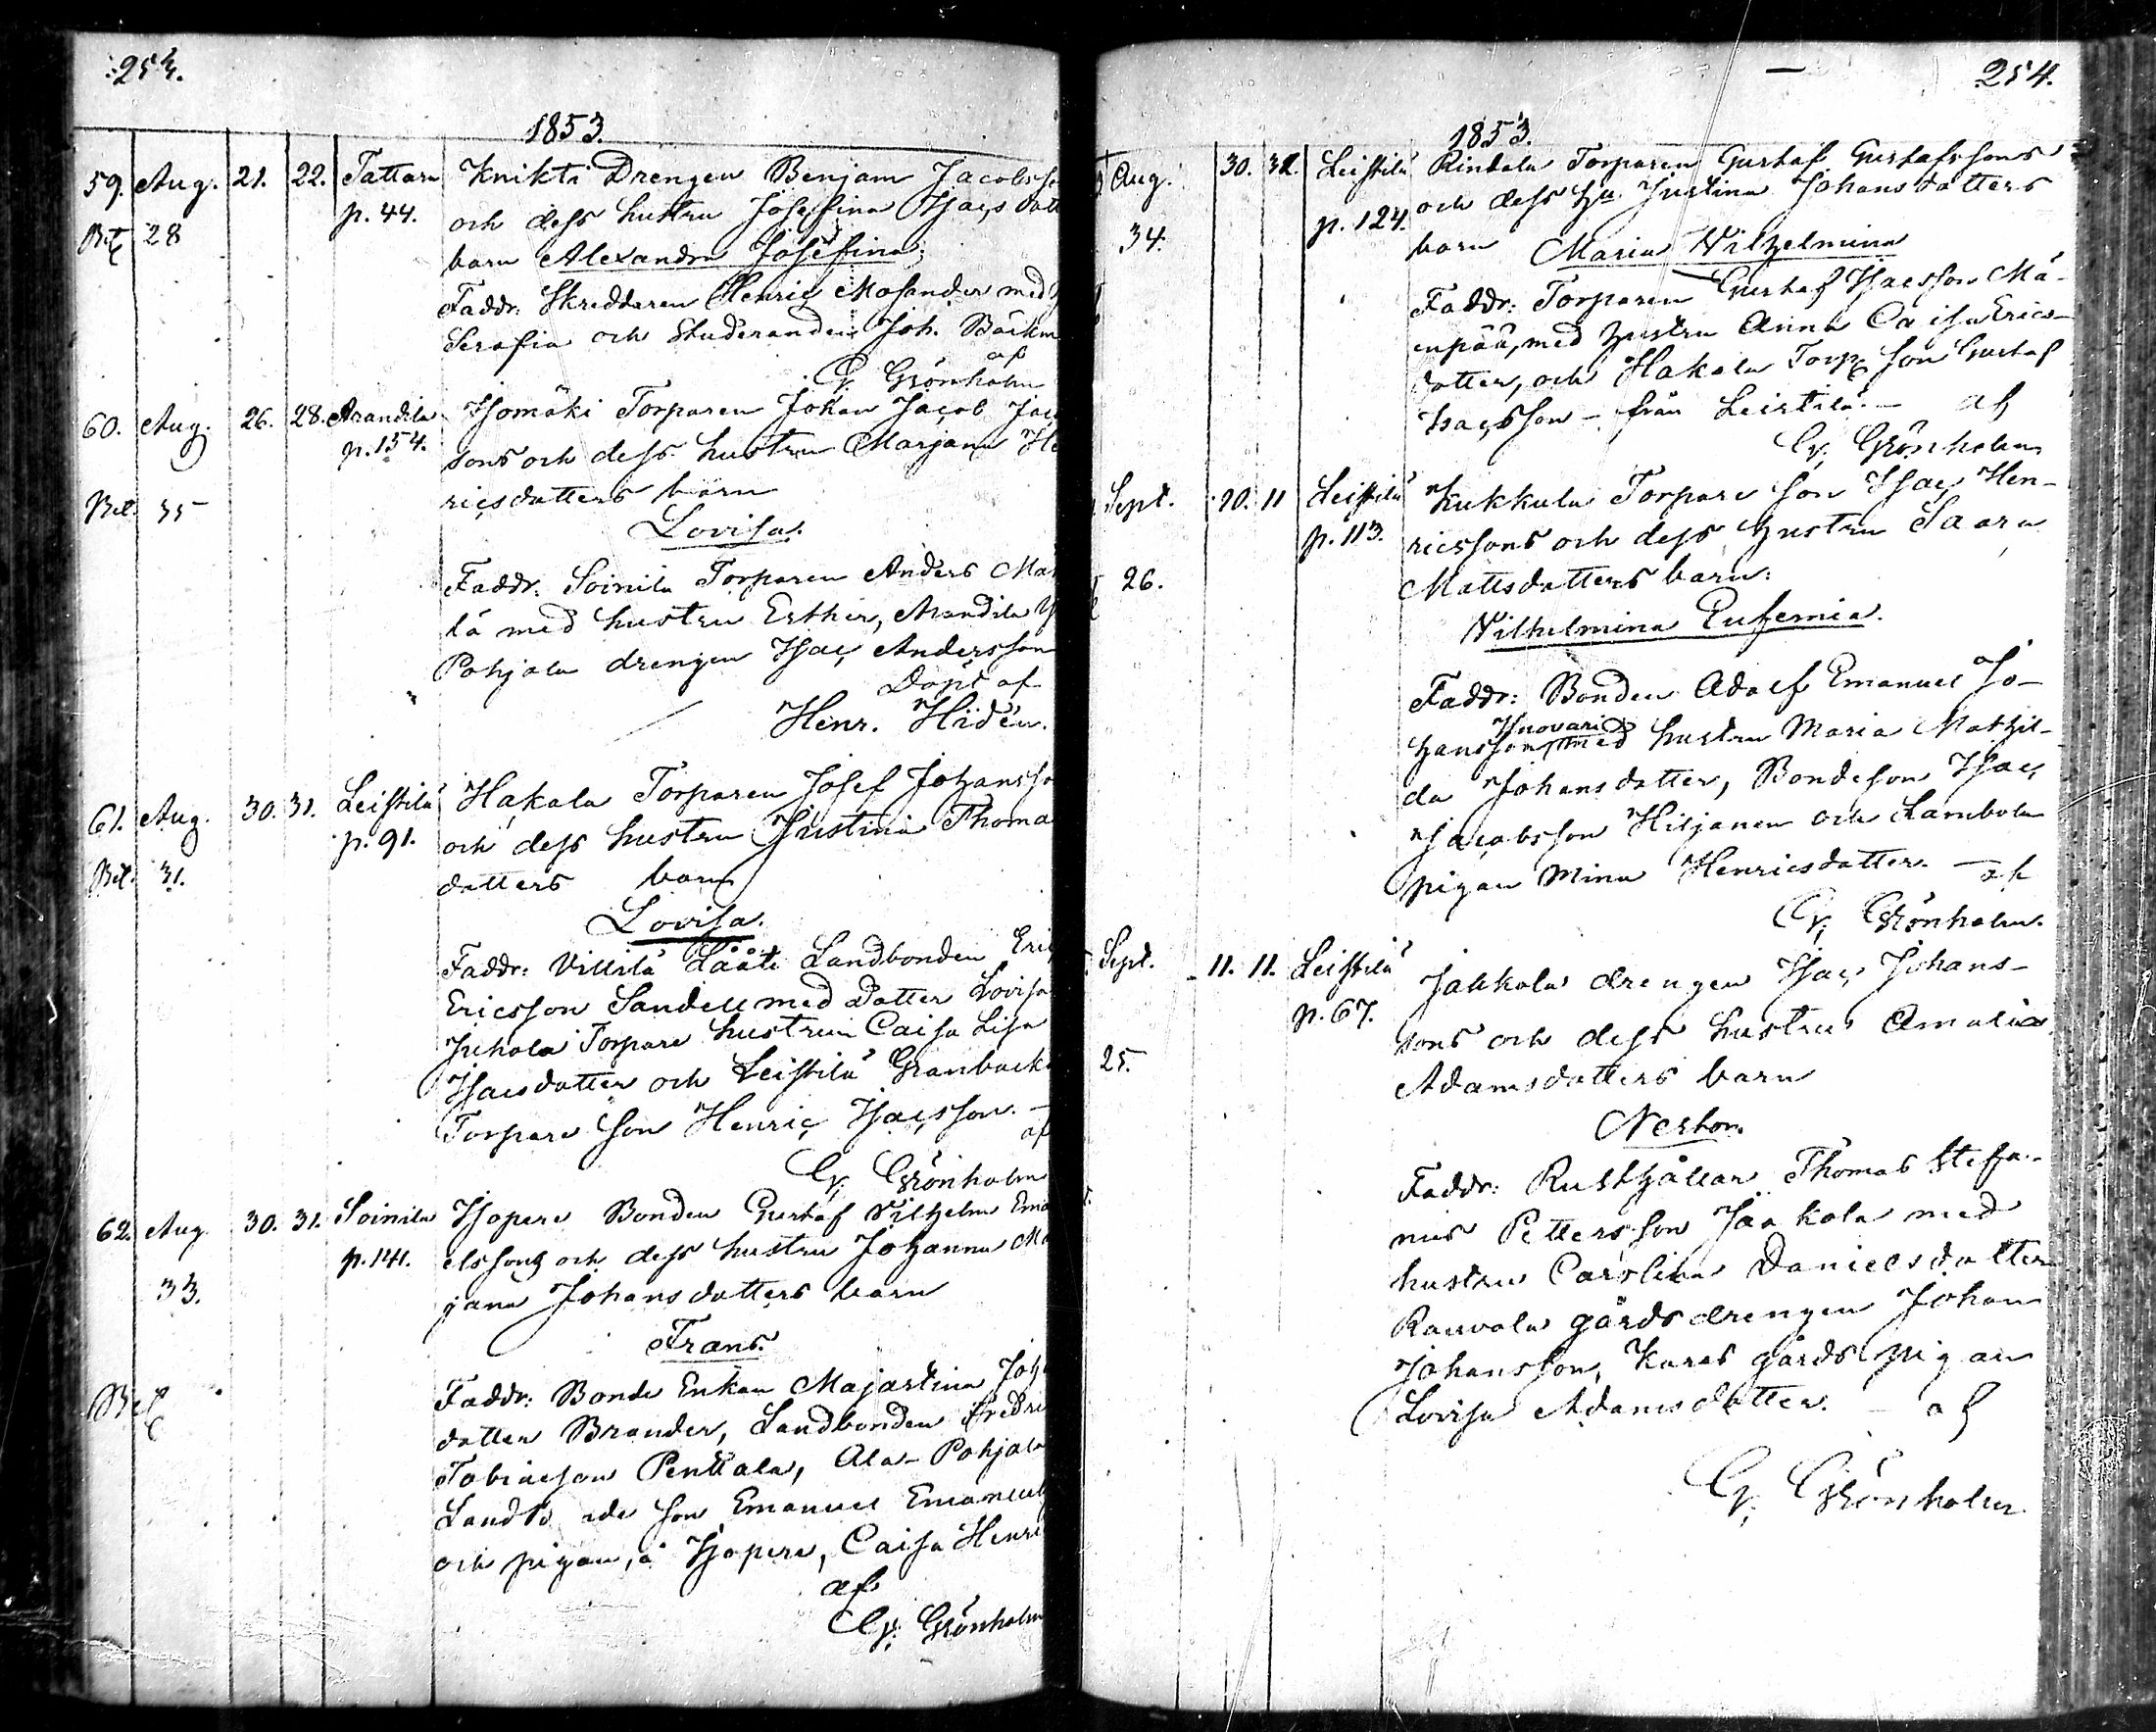 253.
1853.
59. Aug. 21. 22. Tattara Knikti Drengen Benjam Jacobsso
p. 44. och dess hustru Josefina Isacs datt
Bet 28
barn Alexandra Josefina.
Faddr. Skreddaren Henric Mosander med
Serafia och Studeranden Joh. Bäckm
af
G. Grönholm
60. Aug. 26. 28. Arandila Isomäki Torparen Johan Jacob Jac
p. 154. sons och dess hustru Marjana He
ricsdatters barn
Bet. 35
Lovisa.
Faddr. Soinila Torparen Anders Mat
lä med hustru Esther, Arandila
Pohjala drengen Isac Andersson
Döpt af
Henr. Hidén.
61. Aug. 30. 31. Leistilä Hakala Torparen Josef Johansso
p. 91. och dess hustru Justina Thoma
Bet. 31. datters barn
Lovisa.
Faddr: Villilä Lååti Landbonden Eric
Ericsson Sandell med datter Lovisa
Torpare hustrun Caisa Lisa
Isacsdatter och Leistilä Granback
Torpare son Henric Isacsson. —
af
G. Grönholm
62. Aug 30. 31. Soinila Isopere Bonden Gustaf Vilhelm Ema
p. 141. elssons och dess hustru Johanna Ma
33. jana Johansdatters barn
Frans.
Bet
Faddr: Bonde Enkan Majastina Joh
datter Brander, Landbonden Fredri
Tobiasson Penttala, Ala-Pohjala
Landbonde son Emanuel Emanuels
och pigan, å Isopere, Caisa Henri
af
G. Grönholm
254.
1853.
Aug. 30. 31. Leistilä Rindala Torparen Gustaf Gustafssons
p. 124. och dess Hu Justina Johansdatters
34. barn Maria Wilhelmina
Faddr: Torparen Gustaf Isacsson Mä-
enpää, med hustru Anna Caisa Erics-
datter, och Hakala Torp. son Gustaf
Isacsson – från Leistilä. – af
G. Grönholm
Sept. 10. 11 Leistilä Kukkula Torpare son Isac Hen-
p. 113. ricssons och dess hustru Saara
26. Mattsdatters barn:
Wilhelmina Eufemia.
Faddr: Bonden Adolf Emanuel Jo-
hansson Isnovari med hustru Maria Mathil-
da Johansdatter, Bondeson Isac
Jacobsson Hiljanen och Lambola
pigan Mina Henricsdatter. — af
G. Grönholm.
Sept. 11. 11. Leistilä Jakkola drengen Isac Johans-
p. 67. sons och dess hustru Amalia
25. Adamsdatters barn
Nestor.
Faddr: Rusthållar Thomas Stefa-
nus Pettersson Jaakola med
hustru Carolina Danielsdatter
Rauvola gårds drengen Johan
Johansson, Kares gårds pigan
Lovisa Adamsdatter. — af
G. Grönholm